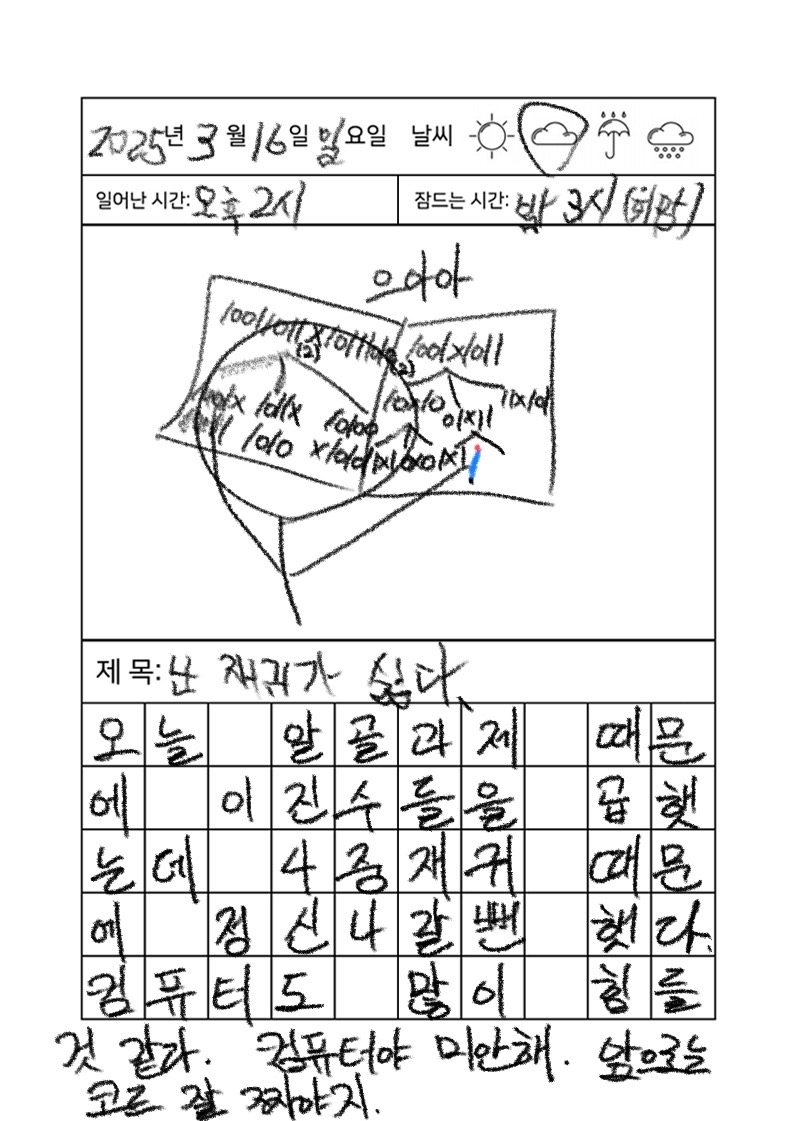 2025년 3월 16일 일요일 날씨
일어난 시간: 오후 2시 잠드는 시간: 밤 3시 (희망)
으아아
1001/1011
1001x1011
(2)
(2)
10x10
01x11
11x10
1010
제 목: 난 재귀가 싫다.
오늘 알골과제 때문
에 이진수들을 곱햇
는데 4중재귀 때문
에 정신나갈뻔 햇다.
컴퓨터도 많이 힘들
것 같다. 컴퓨터야 미안해. 앞으로는
코드 잘 짜야지.